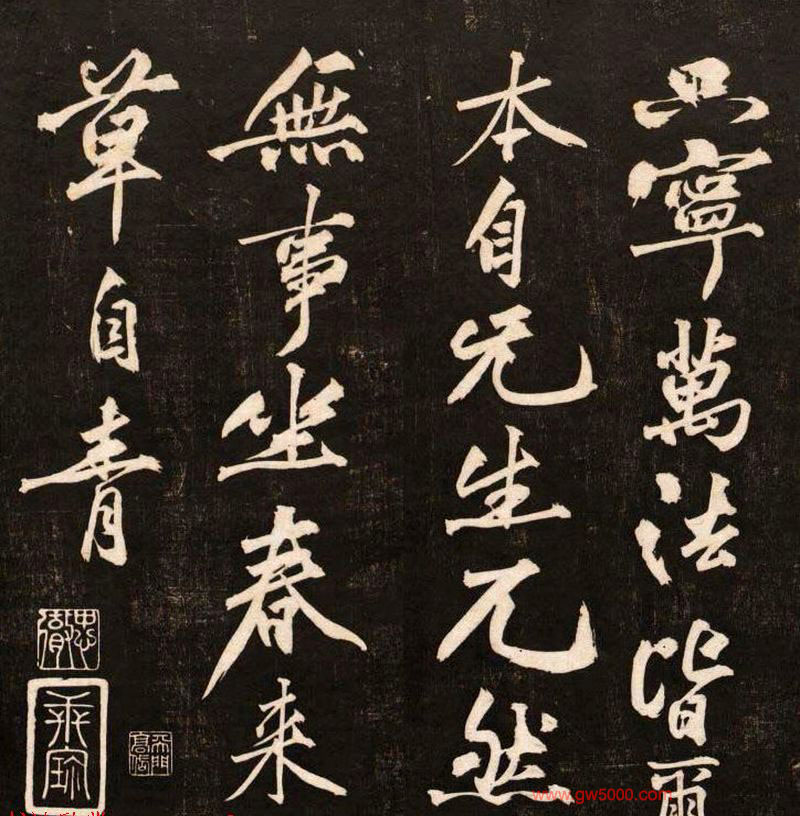 只寧萬法皆爾
本自兄生兀然
無事坐春來
草自青
www.gw5000.com